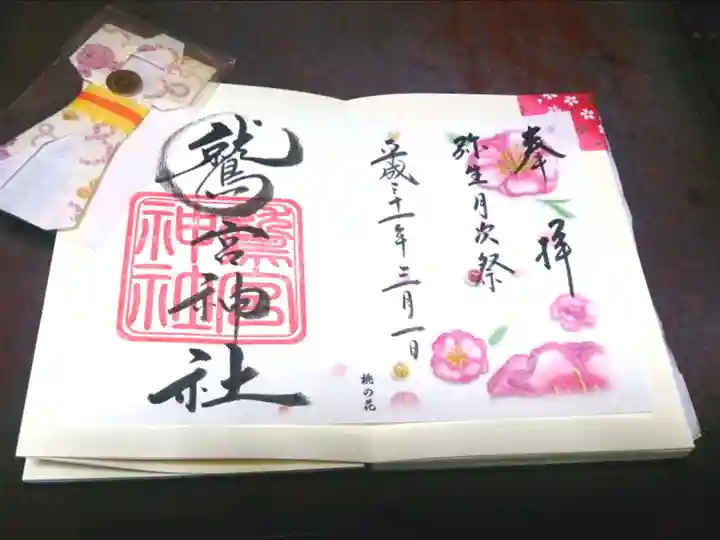 奉拝
弥生月次祭
平成三十一年三月一日
桃の花
鷲宮神社
鷲宮神社